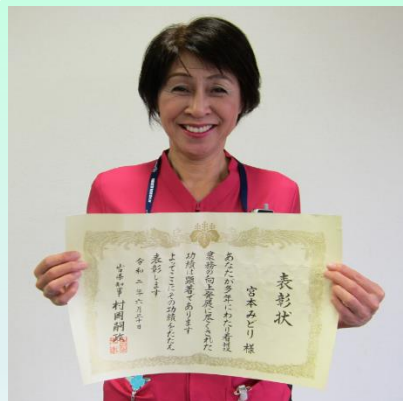 表彰状
宮本みどり 様
あなたが多年にわたり看護
業務の向上発展に尽くされた
功績は顕著であります
よってここにその功績をたたえ
表彰します
令和二年六月三十日
山口県知事 村岡嗣政